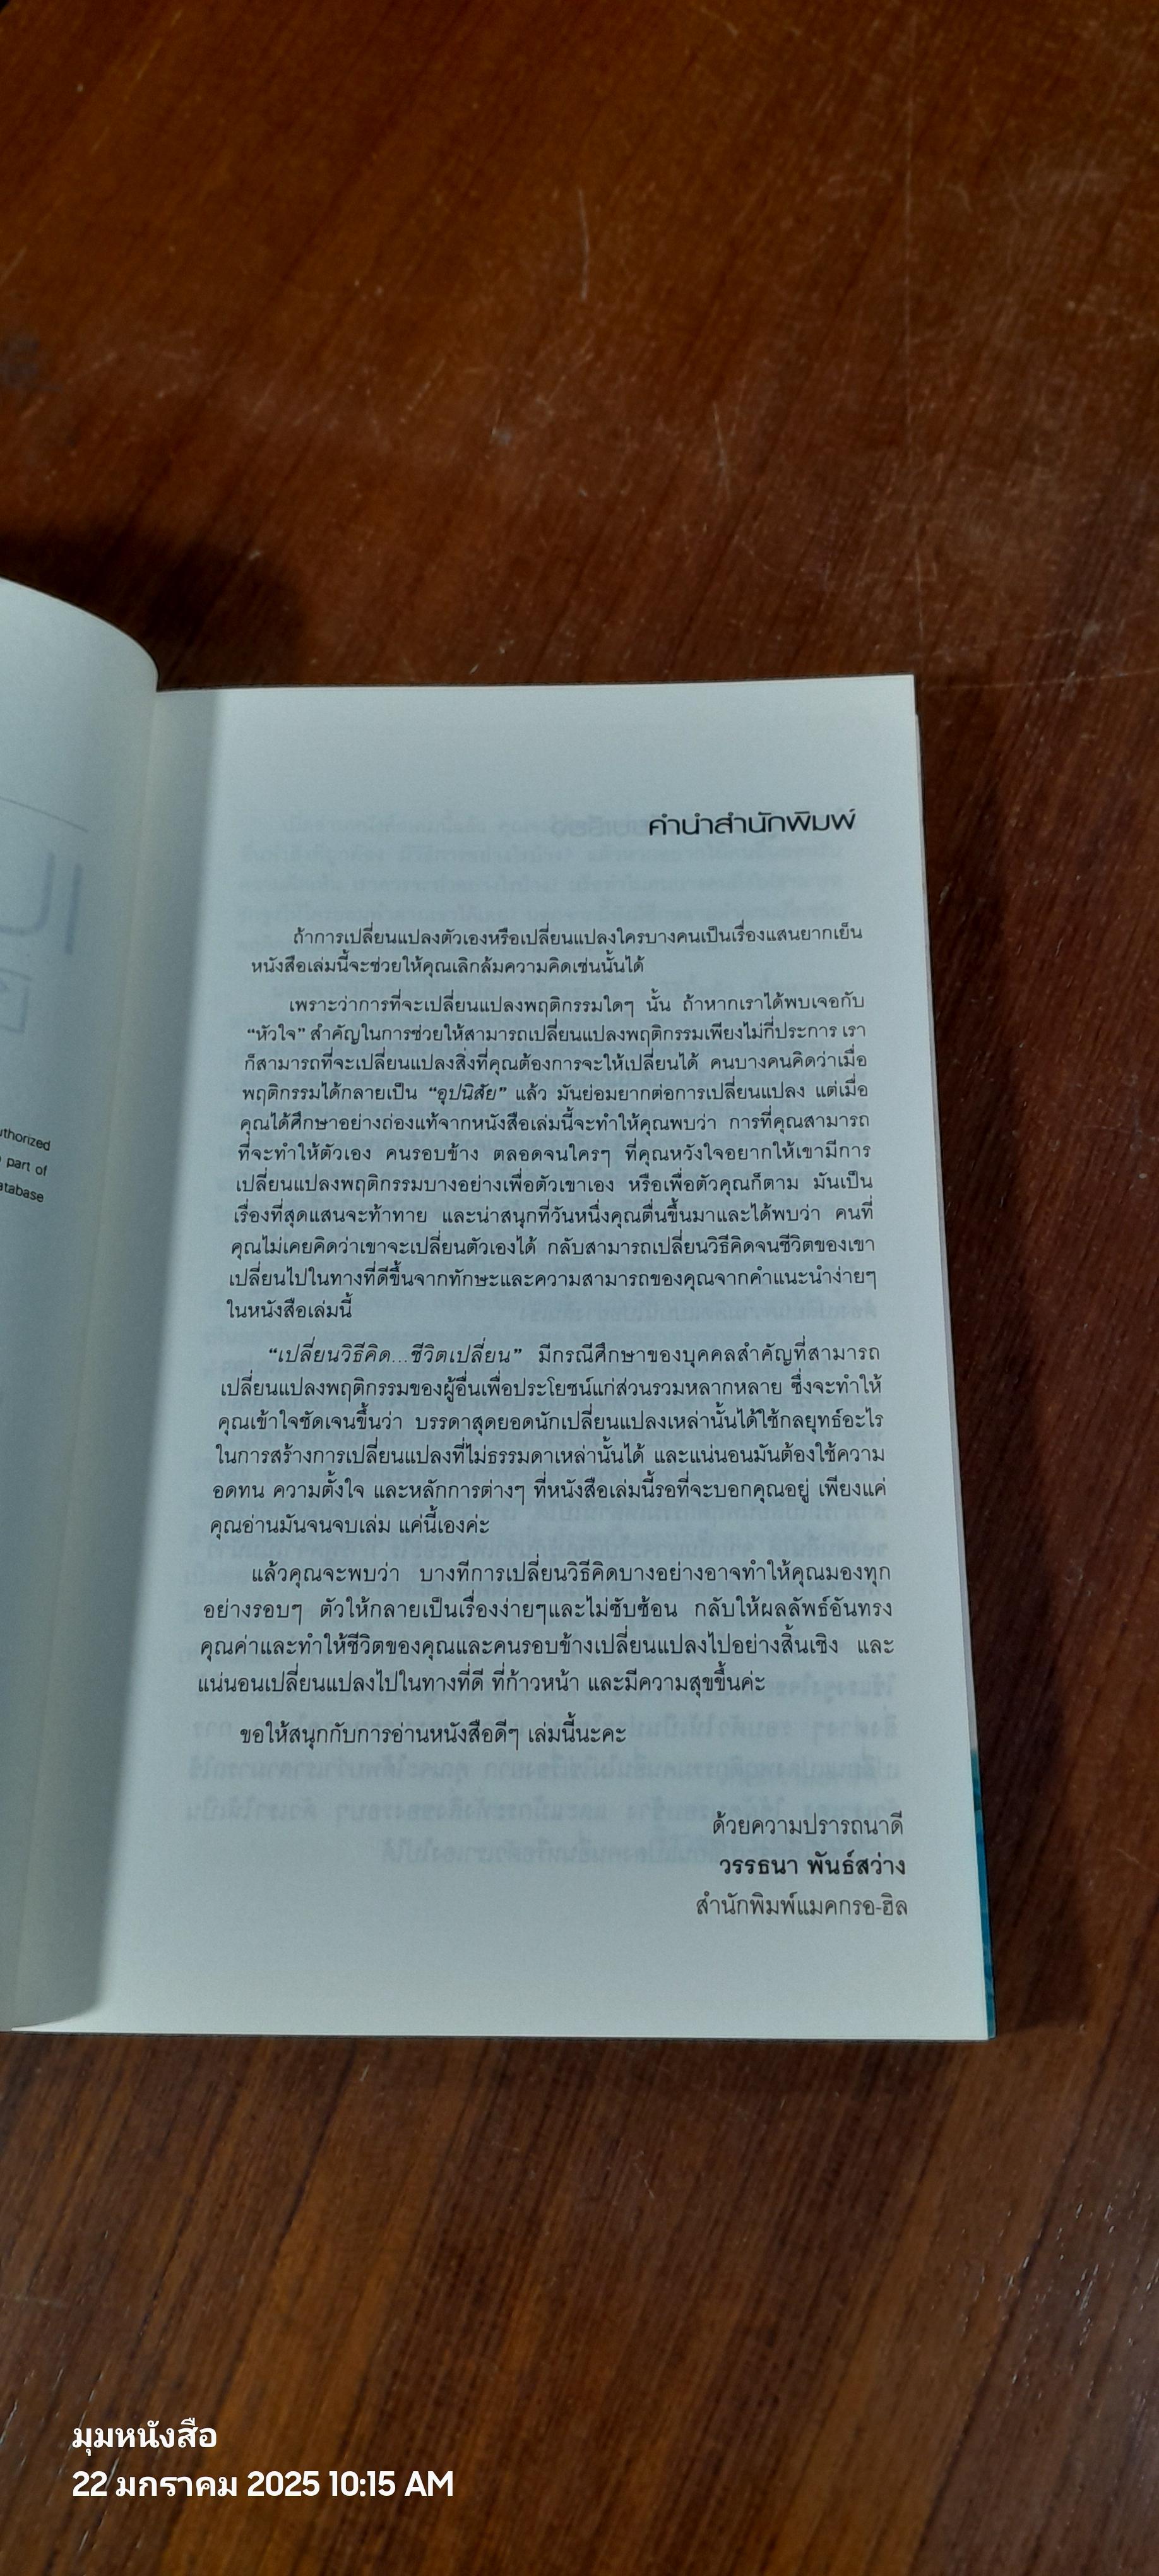 uthorized
part of
atabase
คำนำสำนักพิมพ์
ถ้าการเปลี่ยนแปลงตัวเองหรือเปลี่ยนแปลงใครบางคนเป็นเรื่องแสนยากเย็น
หนังสือเล่มนี้จะช่วยให้คุณเลิกล้มความคิดเช่นนั้นได้
เพราะว่าการที่จะเปลี่ยนแปลงพฤติกรรมใดๆ นั้น ถ้าหากเราได้พบเจอกับ
“หัวใจ” สำคัญในการช่วยให้สามารถเปลี่ยนแปลงพฤติกรรมเพียงไม่กี่ประการ เรา
ก็สามารถที่จะเปลี่ยนแปลงสิ่งที่คุณต้องการจะให้เปลี่ยนได้ คนบางคนคิดว่าเมื่อ
พฤติกรรมได้กลายเป็น “อุปนิสัย” แล้ว มันย่อมยากต่อการเปลี่ยนแปลง แต่เมื่อ
คุณได้ศึกษาอย่างถ่องแท้จากหนังสือเล่มนี้จะทำให้คุณพบว่า การที่คุณสามารถ
ที่จะทำให้ตัวเอง คนรอบข้าง ตลอดจนใครๆ ที่คุณหวังใจอยากให้เขามีการ
เปลี่ยนแปลงพฤติกรรมบางอย่างเพื่อตัวเขาเอง หรือเพื่อตัวคุณก็ตาม มันเป็น
เรื่องที่สุดแสนจะท้าทาย และน่าสนุกที่วันหนึ่งคุณตื่นขึ้นมาและได้พบว่า คนที่
คุณไม่เคยคิดว่าเขาจะเปลี่ยนตัวเองได้ กลับสามารถเปลี่ยนวิธีคิดจนชีวิตของเขา
เปลี่ยนไปในทางที่ดีขึ้นจากทักษะและความสามารถของคุณจากคำแนะนำง่ายๆ
ในหนังสือเล่มนี้
“เปลี่ยนวิธีคิด...ชีวิตเปลี่ยน” มีกรณีศึกษาของบุคคลสำคัญที่สามารถ
เปลี่ยนแปลงพฤติกรรมของผู้อื่นเพื่อประโยชน์แก่ส่วนรวมหลากหลาย ซึ่งจะทำให้
คุณเข้าใจชัดเจนขึ้นว่า บรรดาสุดยอดนักเปลี่ยนแปลงเหล่านั้นได้ใช้กลยุทธ์อะไร
ในการสร้างการเปลี่ยนแปลงที่ไม่ธรรมดาเหล่านั้นได้ และแน่นอนมันต้องใช้ความ
อดทน ความตั้งใจ และหลักการต่างๆ ที่หนังสือเล่มนี้รอที่จะบอกคุณอยู่ เพียงแค่
คุณอ่านมันจนจบเล่ม แค่นี้เองค่ะ
แล้วคุณจะพบว่า บางทีการเปลี่ยนวิธีคิดบางอย่างอาจทำให้คุณมองทุก
อย่างรอบๆ ตัวให้กลายเป็นเรื่องง่ายๆและไม่ซับซ้อน กลับให้ผลลัพธ์อันทรง
คุณค่าและทำให้ชีวิตของคุณและคนรอบข้างเปลี่ยนแปลงไปอย่างสิ้นเชิง และ
แน่นอนเปลี่ยนแปลงไปในทางที่ดี ที่ก้าวหน้า และมีความสุขขึ้นค่ะ
ขอให้สนุกกับการอ่านหนังสือดีๆ เล่มนี้นะคะ
ด้วยความปรารถนาดี
วรรธนา พันธ์สว่าง
สำนักพิมพ์แมคกรอ-ฮิล
มุมหนังสือ
22 มกราคม 2025 10:15 AM